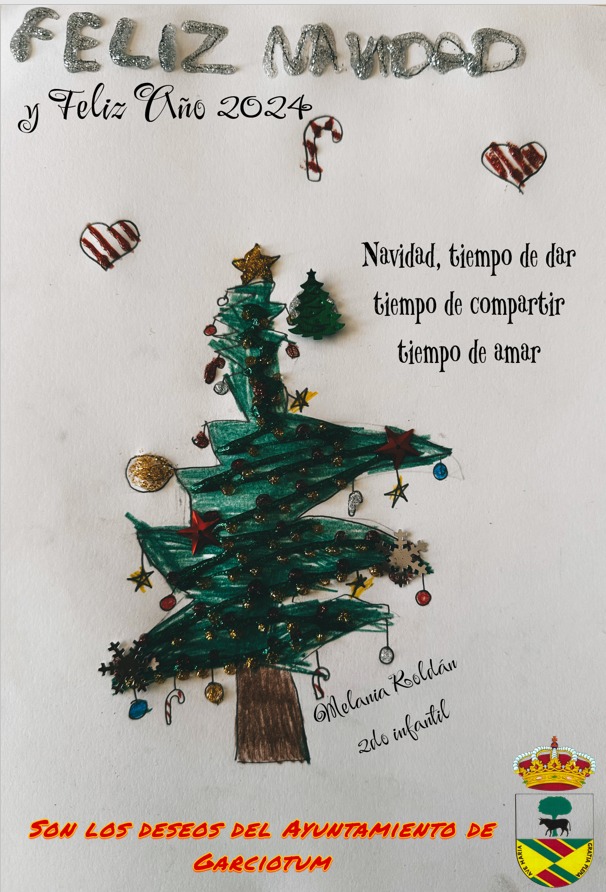 FELIZ NAVIDAD
y Feliz Año 2024
Navidad, tiempo de dar
tiempo de compartir
tiempo de amar
Melania Roldán
2do infantil
Son los deseos del Ayuntamiento de
Garciotum
AVE MARIA
GRATIA PLENA